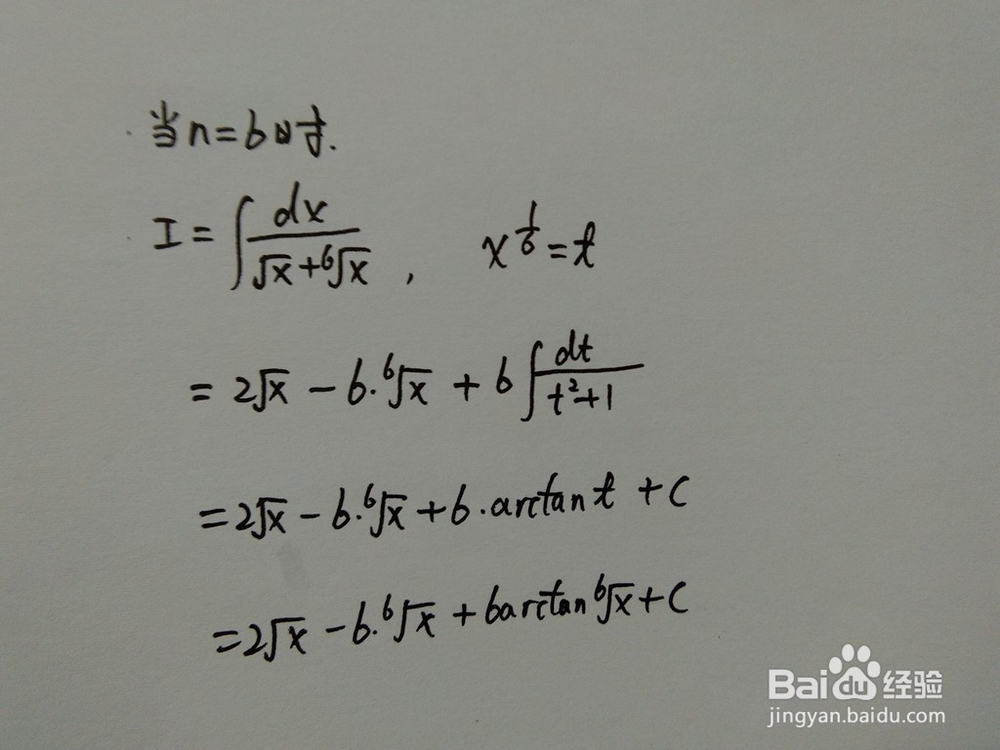 当n=6时.
I = ∫ dx/(√x+⁶√x) , x^(1/6)=t
= 2√x - 6·⁶√x + 6∫ dt/(t²+1)
=2√x - 6·⁶√x + 6·arctan t + C
=2√x - 6·⁶√x + 6arctan⁶√x + C
Baidu 经验
jingyan.baidu.com